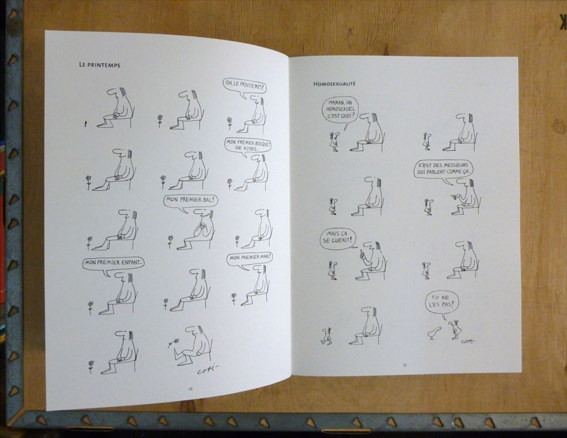 LE PRINTEMPS
OH, LE PRINTEMPS!
MON PREMIER BOUQUET
DE ROSES..
MON PREMIER BAL!
MON PREMIER ENFANT..
MON PREMIER MARI!
COPI
HOMOSEXUALITÉ
MAMAN, UN
HOMOSEXUEL
C'EST QUOI?
C'EST DES MESSIEURS
QUI PARLENT COMME ÇA..
MAIS ÇA
SE GUÉRIT!
TU NE
L'ES PAS?
COPI